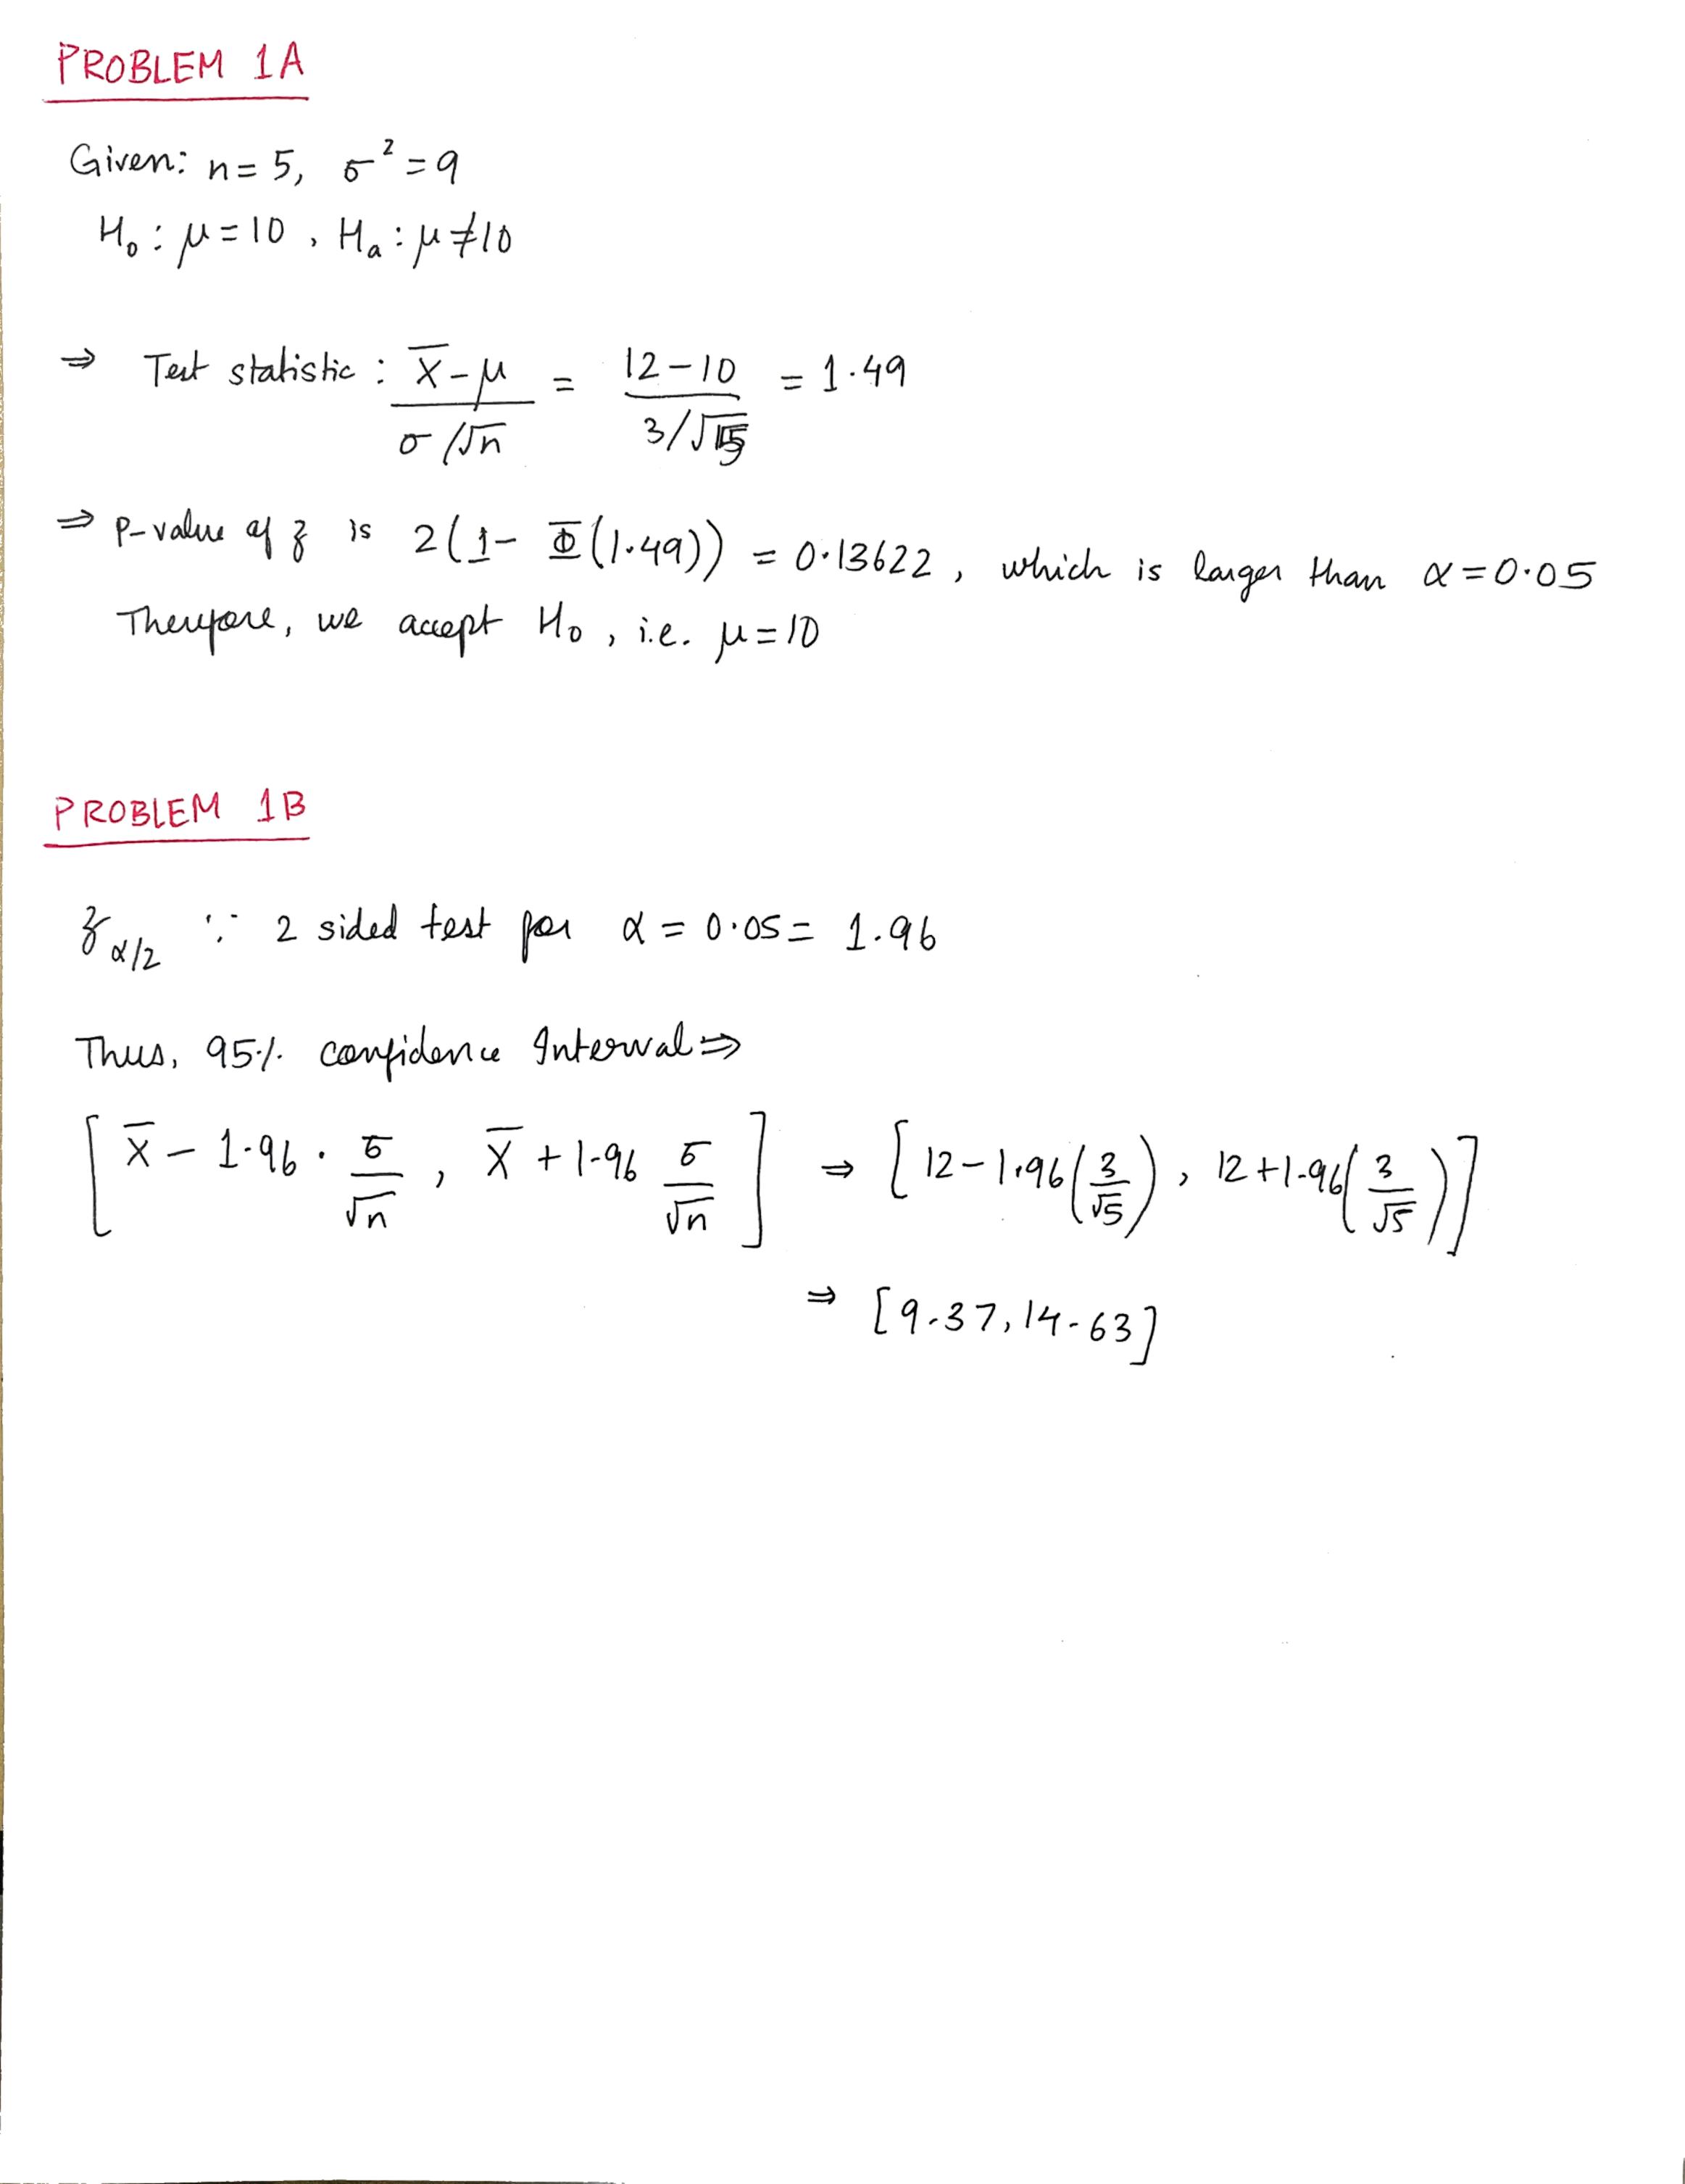 PROBLEM 1A
Given: n = 5, σ² = 9
H₀ : μ = 10 , Hₐ : μ ≠ 10
⇒ Test statistic : (X̄ - μ) / (σ/√n) = (12 - 10) / (3/√5) = 1.49
⇒ P-value of z is 2(1 - Φ(1.49)) = 0.13622 , which is larger than α = 0.05
Therefore, we accept H₀ , i.e. μ = 10
PROBLEM 1B
z α/2 ∵ 2 sided test for α = 0.05 = 1.96
Thus, 95% confidence Interval ⇒
[ X̄ - 1.96 · σ/√n , X̄ + 1.96 σ/√n ] ⇒ [ 12 - 1.96 (3/√5) , 12 + 1.96 (3/√5) ]
⇒ [9.37, 14.63]